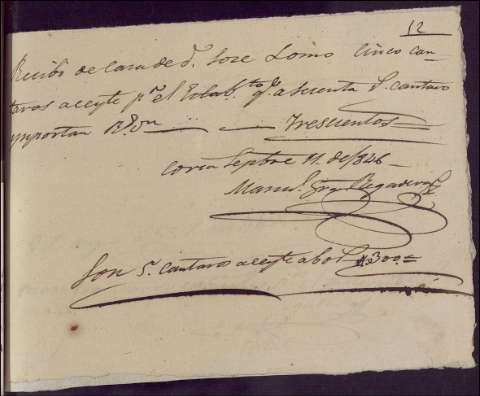 12
Recibi de Casa de D. Jose Lomo Cinco can-
taros aceyte pa el Establto qe a Sesenta Rs. cantaro
ymportan Rs. Von — — Trescientos =
Coria Septre 11 de 1846 —
Manul.
Son 5 cantaros aceyte a 60 Rs 300 =